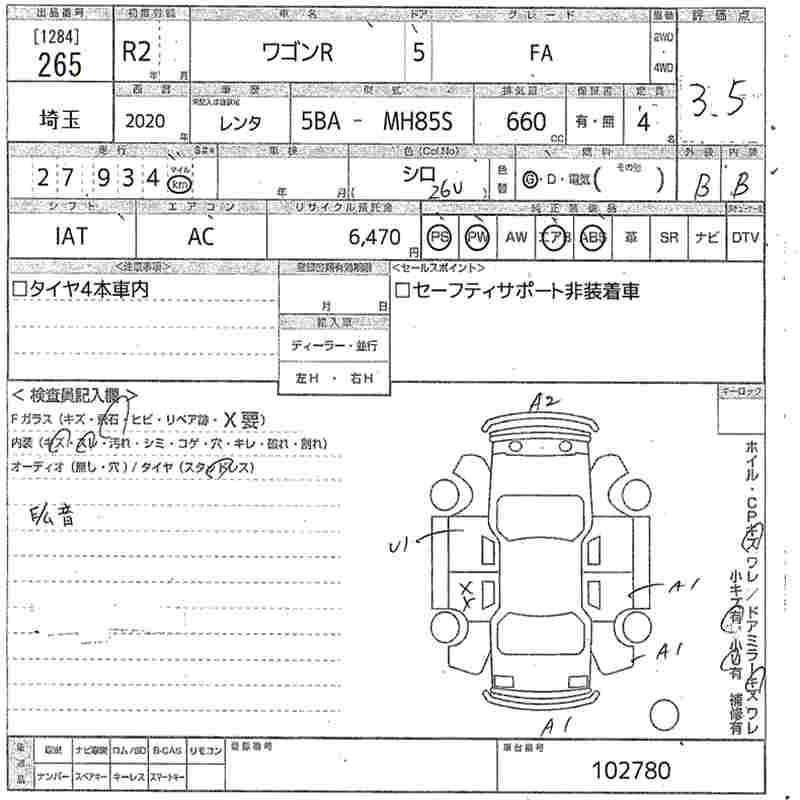 出品番号 初度登録 車名 ドア グレード 駆動 評価点
[1284] 265 R2 年 月 ワゴンR 5 FA 2WD 4WD 3.5
西暦 車歴 型式 排気量 保証書 定員
埼玉 2020 年 レンタ 5BA - MH85S 660 CC 有・無 4 名
走行 車検 色(Col.No) 色替 燃料 外装 内装
27,934 マイル km 年 月 シロ ( 26U ) G・D・電気( その他 ) B B
シフト エアコン リサイクル預託金 純正装備品
IAT AC 6,470 円 PS PW AW エアB ABS 革 SR ナビ DTV
<注意事項> 登録書類有効期限 <セールスポイント>
□タイヤ4本車内 月 日 □セーフティサポート非装着車
輸入車
ディーラー・並行
左H・右H
<検査員記入欄> キーロック
Fガラス(キズ・飛石・ヒビ・リペア跡・X要)
内装(キズ・スレ・汚れ・シミ・コゲ・穴・キレ・破れ・割れ)
オーディオ(無し・穴)/タイヤ(スタッドレス)
音
A2
U1
X
X
A1
A1
A1
ホイル・CPキズワレ/ドアミラーキズワレ
小キズ有・小U有 補修有
取説 ナビ取説 ロム/SD B-CAS リモコン 登録番号 車台番号
ナンバー スペアキー キーレス スマートキー 102780